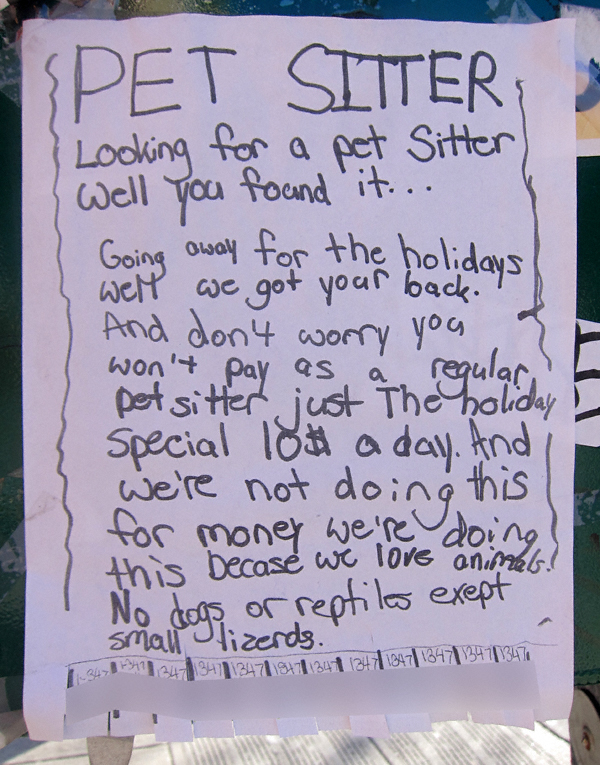 PET SITTER
Looking for a pet Sitter
well you found it...
Going away for the holidays
well we got your back.
And don't worry you
won't pay as a regular
pet sitter just The holiday
special 10$ a day. And
we're not doing this
for money we're doing
this becase we love animals.
No dogs or reptiles exept
small lizerds.
1-347 1-347 1347 1347 1347 1347 1347 1347 1347 1347 1347